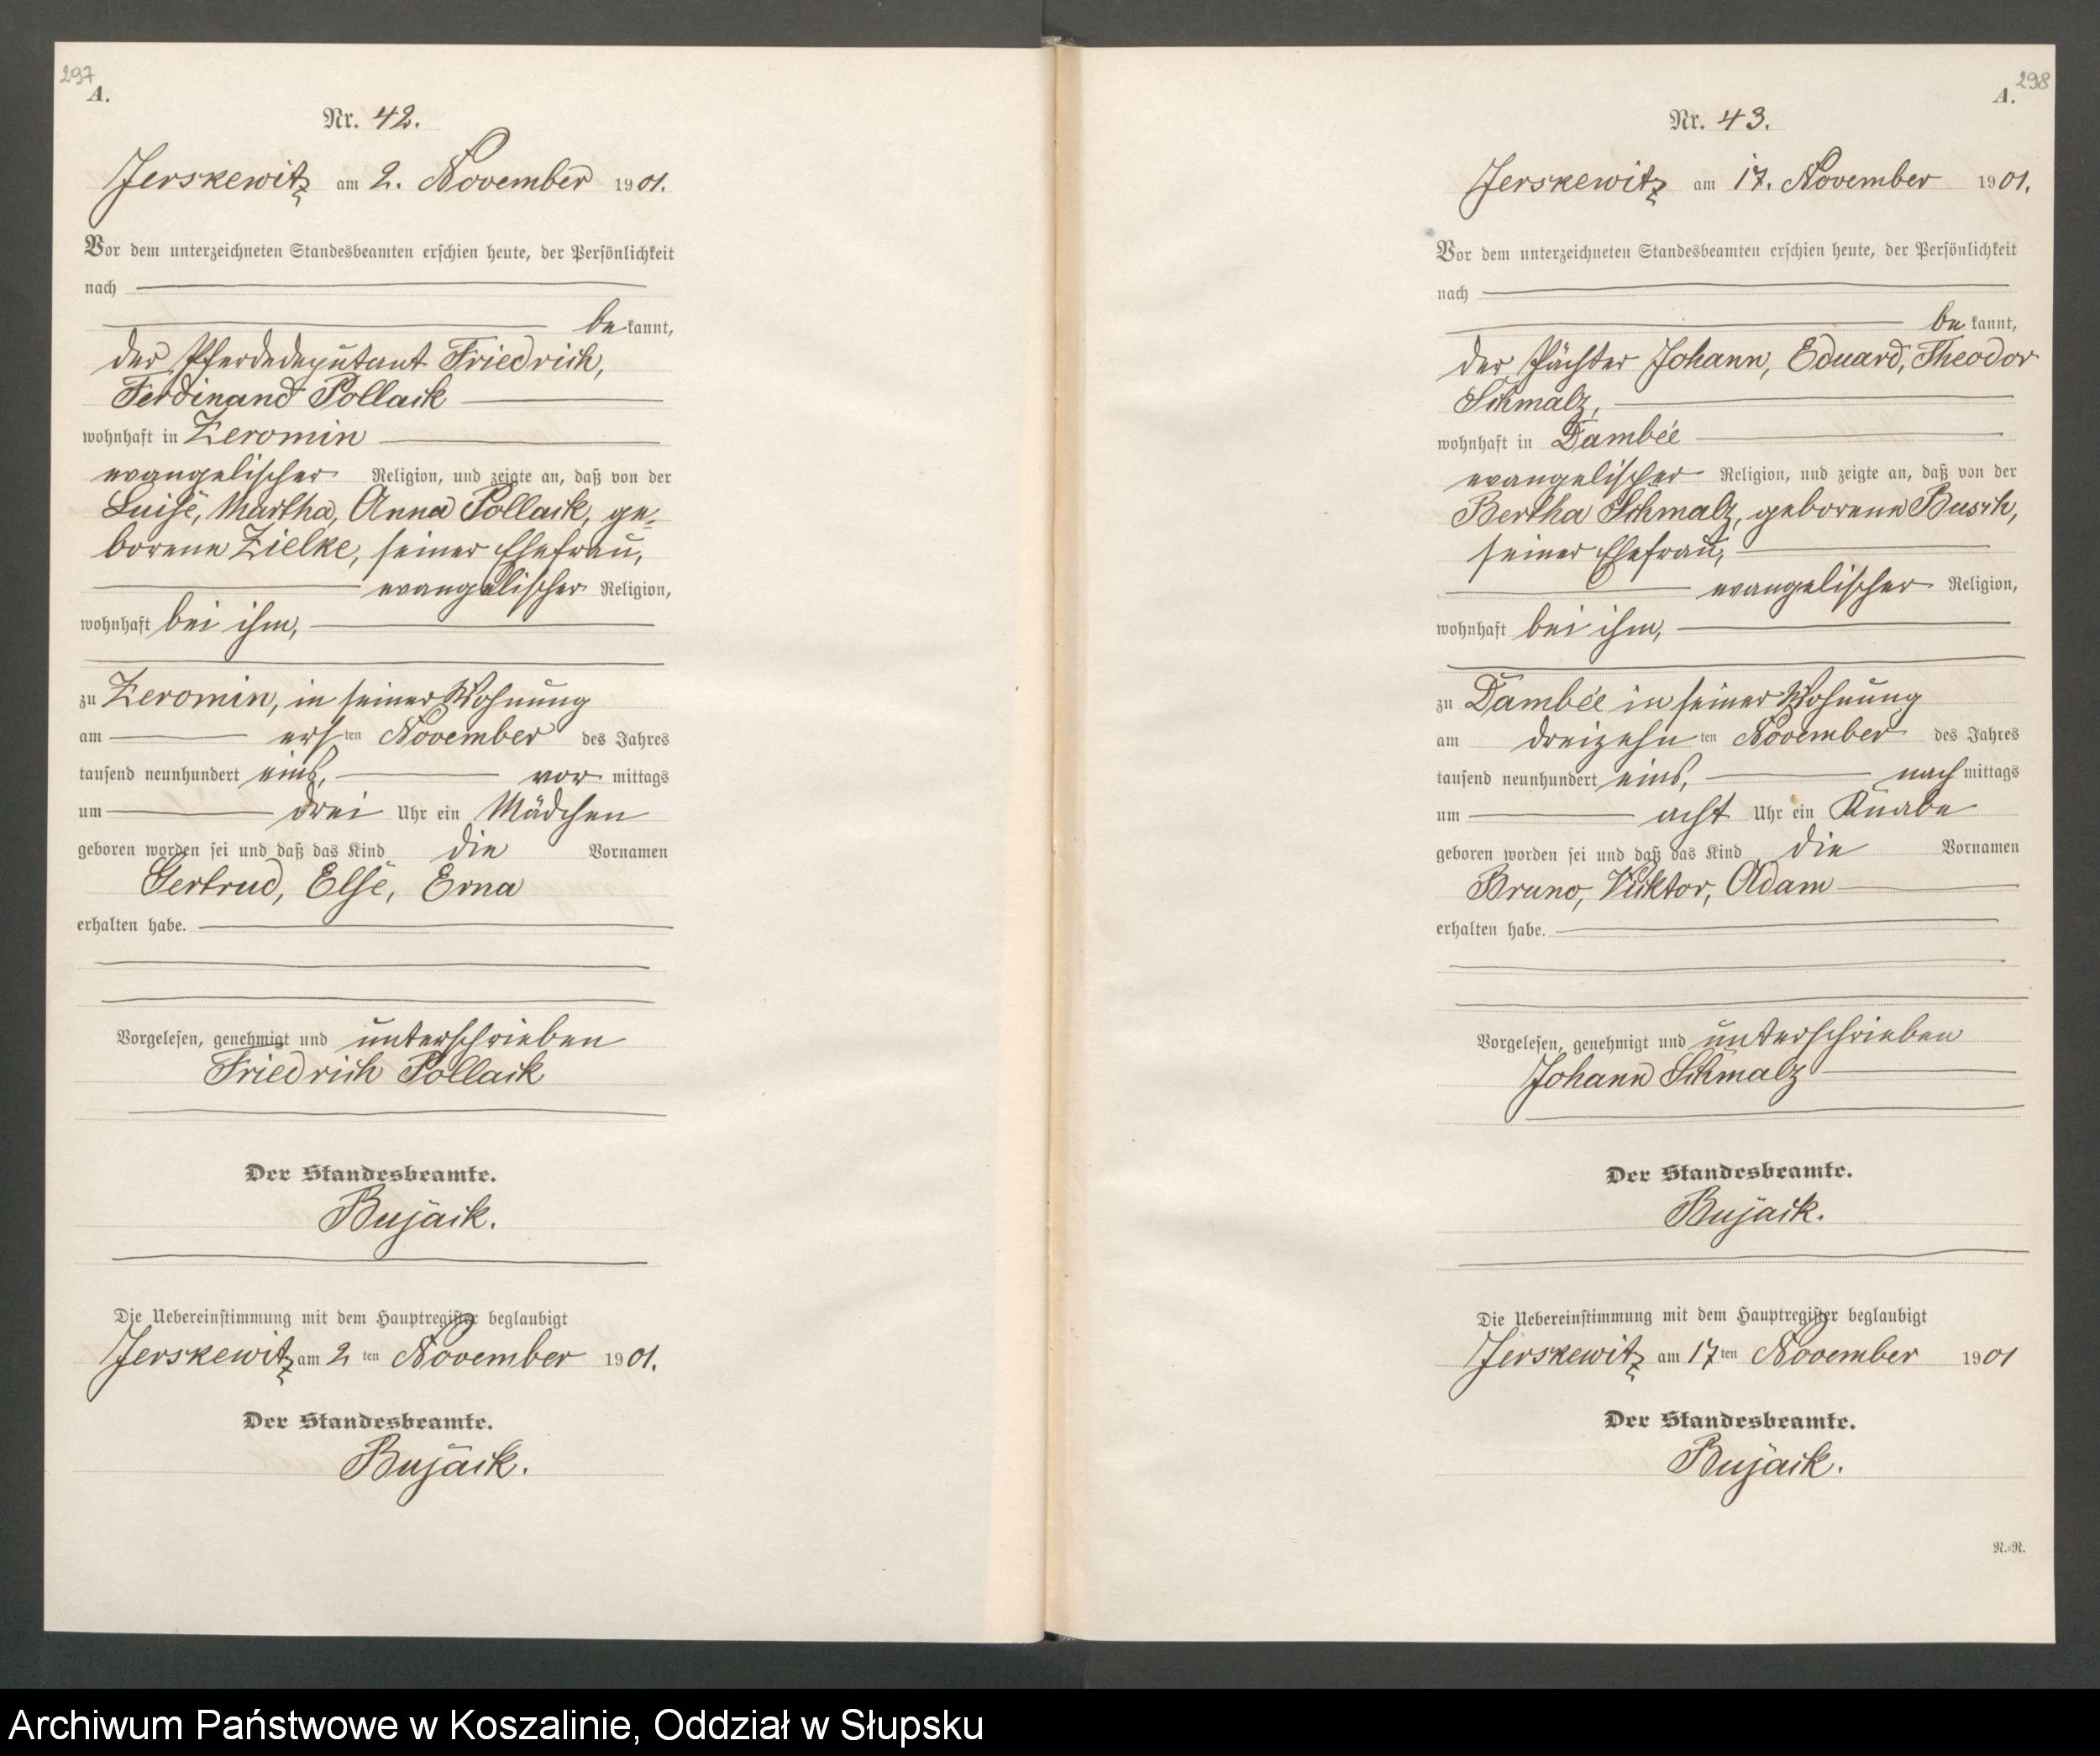 297
A.
Nr. 42.
Jerskewitz am 2. November 1901.
Vor dem unterzeichneten Standesbeamten erschien heute, der Persönlichkeit
nach
be kannt,
der Pferdedeputant Friedrich,
Ferdinand Pollack
wohnhaft in Zeromin
evangelischer Religion, und zeigte an, daß von der
Luise, Martha, Anna Pollack, ge-
borene Zielke, seiner Ehefrau,
evangelischer Religion,
wohnhaft bei ihm,
zu Zeromin, in seiner Wohnung
am ersten November des Jahres
tausend neunhundert eins, vor mittags
um drei Uhr ein Mädchen
geboren worden sei und daß das Kind die Vornamen
Gertrud, Else, Erna
erhalten habe.
Vorgelesen, genehmigt und unterschrieben
Friedrich Pollack
Der Standesbeamte.
Bujack.
Die Uebereinstimmung mit dem Hauptregister beglaubigt
Jerskewitz am 2 ten November 1901.
Der Standesbeamte.
Bujack.
298
A.
Nr. 43.
Jerskewitz am 17. November 1901.
Vor dem unterzeichneten Standesbeamten erschien heute, der Persönlichkeit
nach
be kannt,
der Pächter Johann, Eduard, Theodor
Schmalz,
wohnhaft in Dambée
evangelischer Religion, und zeigte an, daß von der
Bertha Schmalz, geborene Busch,
seiner Ehefrau,
evangelischer Religion,
wohnhaft bei ihm,
zu Dambée in seiner Wohnung
am dreizehnten November des Jahres
tausend neunhundert eins, nach mittags
um acht Uhr ein Knabe
geboren worden sei und daß das Kind die Vornamen
Bruno, Vicktor, Adam
erhalten habe.
Vorgelesen, genehmigt und unterschrieben
Johann Schmalz
Der Standesbeamte.
Bujack.
Die Uebereinstimmung mit dem Hauptregister beglaubigt
Jerskewitz am 17ten November 1901
Der Standesbeamte.
Bujack.
N.=R.
Archiwum Państwowe w Koszalinie, Oddział w Słupsku